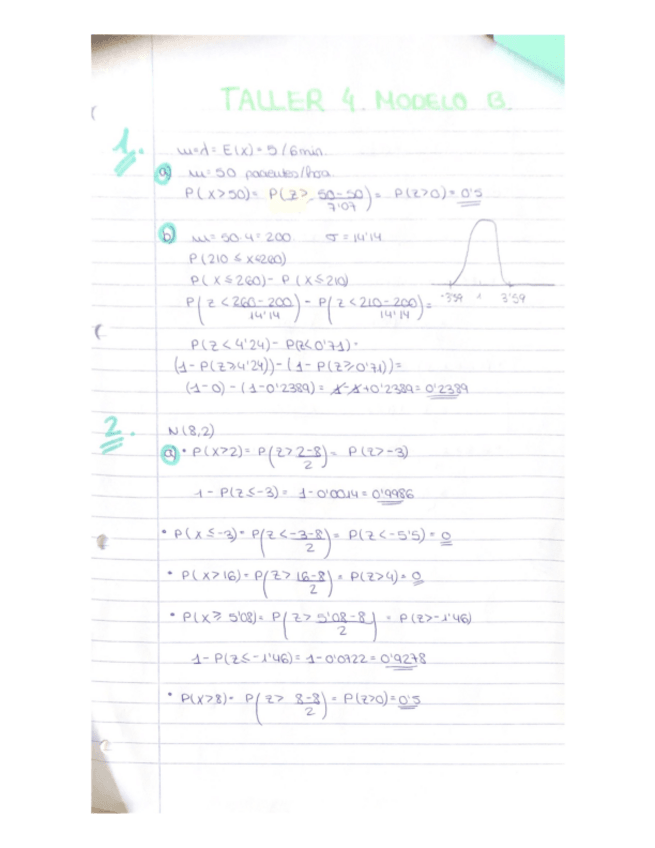 TALLER 4. MODELO B.
1.
m=λ= E(X)=5/6min.
a) m=50 pacientes/hora
P(X>50)= P(Z> 50-50/7'07)= P(Z>0)=0'5
b) m=50·4=200 σ=14'14
P(210≤X<260)
P(X≤260)- P(X≤210)
P(Z<260-200/14'14)-P(Z<210-200/14'14)=
-3'59 3'59
P(Z<4'24)-P(Z<0'71)=
(1-P(Z≥4'24))-(1-P(Z≥0'71))=
(1-0)-(1-0'2389)= 1-1+0'2389=0'2389
2.
N(8,2)
a) • P(X>2)= P(Z>2-8/2)= P(Z>-3)
1-P(Z≤-3)= 1-0'0014=0'9986
• P(X≤-3)=P(Z<-3-8/2)= P(Z<-5'5)=0
• P(X>16)=P(Z>16-8/2)=P(Z>4)=0
• P(X≥5'08)=P(Z>5'08-8/2)=P(Z>-1'46)
1-P(Z≤-1'46)=1-0'0722=0'9278
• P(X>8)=P(Z>8-8/2)=P(Z>0)=0'5